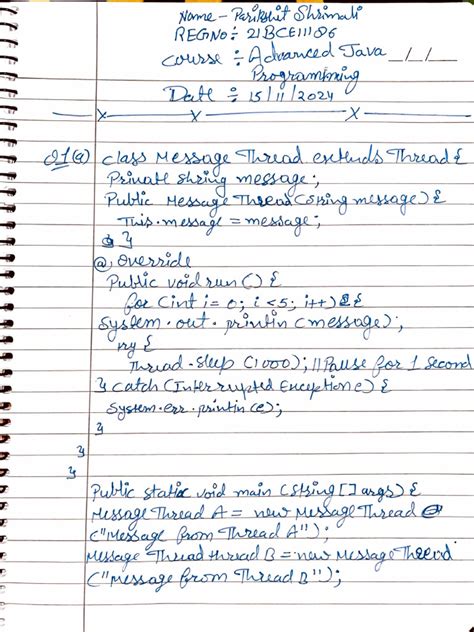 Name - Parikshit Shrimali
REGNo ÷ 21BCE11186
course ÷ Advanced Java _/_/_
Programming
Date ÷ 15/11/2024
Q1(a) class Message Thread extends Thread {
Private string message;
Public Message Thread (string message) {
This.message = message;
}
@ override
Public void run () {
for (int i = 0; i <5; i++) {
System.out.println (message);
try {
Thread.sleep (1000); //Pause for 1 second
} catch (Interrupted Exception e) {
System.err.println (e);
}
}
}
Public static void main (String [] args) {
Message Thread A = new Message Thread
("Message from Thread A");
Message Thread thread B = new Message Thread
("message from Thread B");